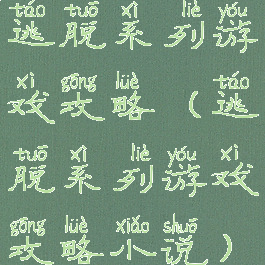 táo tuō xì liè yóu
逃脱系列游
xì gōng lüè táo
戏攻略（逃
tuō xì liè yóu xì
脱系列游戏
gōng lüè xiǎo shuō
攻略小说）